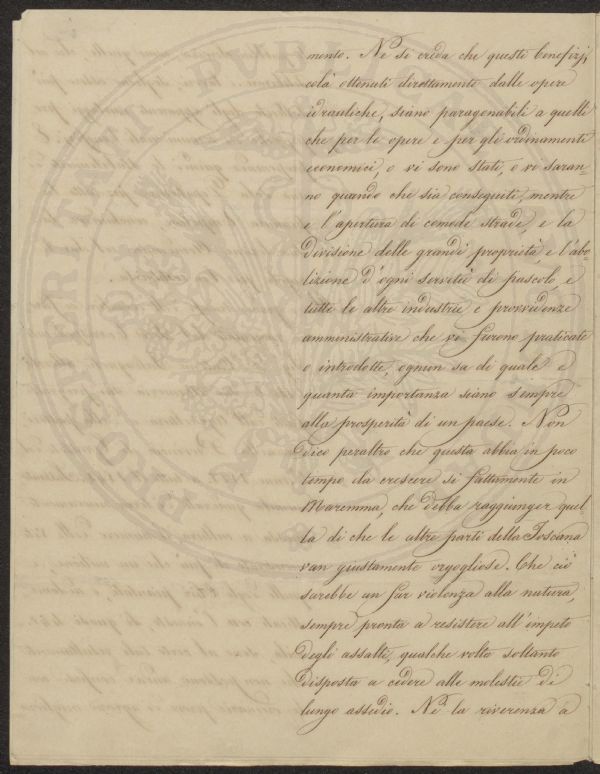 mento. Né si creda che questi benefizj
colà ottenuti direttamente dalle opere
idrauliche, siano paragonabili a quelli
che per le opere e per gli ordinamenti
economici, o vi sono stati, o vi saran-
no quando che sia conseguiti, mentre
e l'apertura di comode strade, e la
divisione delle grandi proprietà, e l'abo
lizione d'ogni servitù di pascolo, e
tutte le altre industrie e provvidenze
amministrative che vi furono praticate
o introdotte, ognun sa di quale e
quanta importanza siano sempre
alla prosperità di un paese. Non
dico peraltro che questa abbia in poco
tempo da crescere sì fattamente in
Maremma, che debba raggiunger quel
la di che le altre parti della Toscana
van giustamente orgogliose. Che ciò
sarebbe un far violenza alla natura,
sempre pronta a resistere all'impeto
degli assalti, qualche volta soltanto
disposta a cedere alle molestie di
lungo assedio. Né la riverenza a
PROSPERITATI PUBL